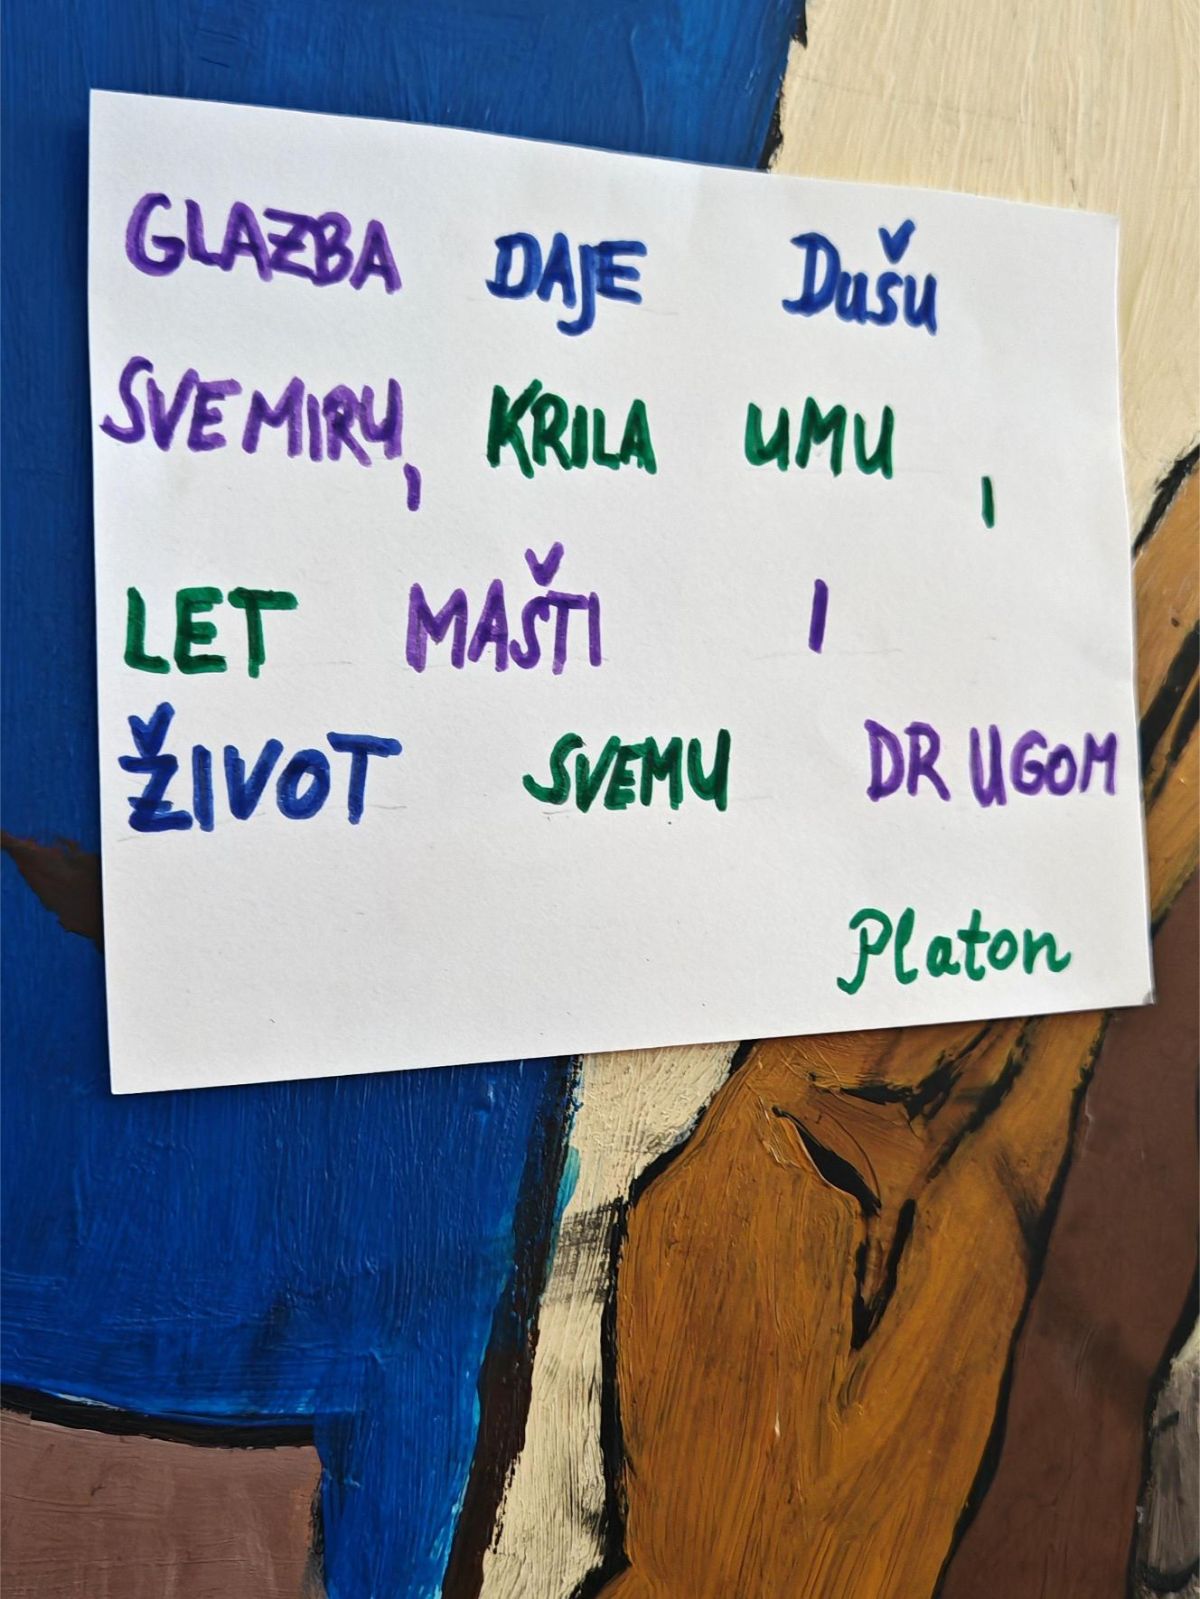 GLAZBA DAJE DUŠU
SVEMIRU, KRILA UMU,
LET MAŠTI I
ŽIVOT SVEMU DRUGOM
Platon